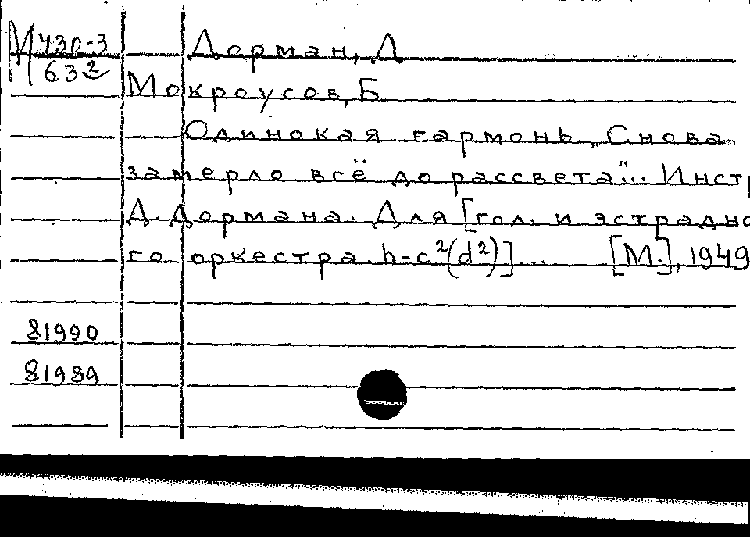 М 430-3 Дорман, Д
632
Мокроусов, Б
Одинокая гармонь „Снова
замерло всё до рассвета"... Инстр
Д. Дормана. Для [гол. и эстрадно
го оркестра h-c²(d²)]... [М.], 1949
81990
81989